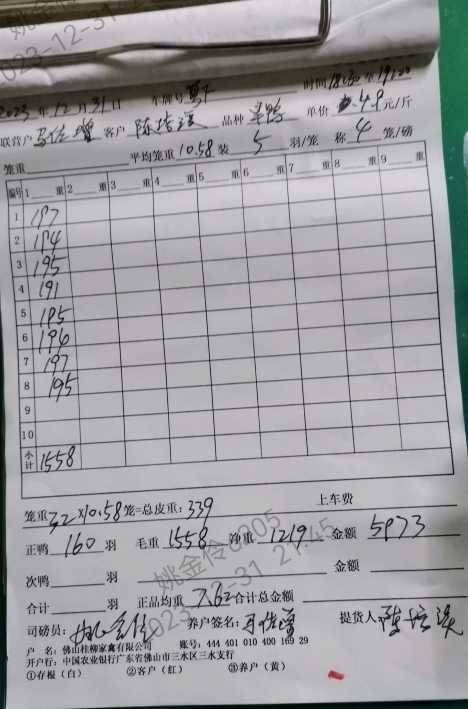 2023年12月31日 车牌号 时间 至19:00
联营户 客户 陈 品种 单价 4.9元/斤
笼重 平均笼重10.58 装 5 羽/笼 称 4 笼/磅
编号 1 重 2 重 3 重 4 重 5 重 6 重 7 重 8 重 9 重
1 197
2 194
3 195
4 191
5 195
6 196
7 197
8 195
9
10
小计 1558
笼重32×10.58笼=总皮重:339 上车费
正鸭 160 羽 毛重 1558 净重 1219 金额 5973
次鸭 羽 金额
合计 羽 正品均重 7.62 合计总金额
司磅员: 养户签名: 提货人
户 名:佛山桂柳家禽有限公司 账号:444 401 010 400 169 29
开户行:中国农业银行广东省佛山市三水区三水支行
①存根(白) ②客户(红) ③养户(黄)
姚金伶6205
023-12-31 21:45